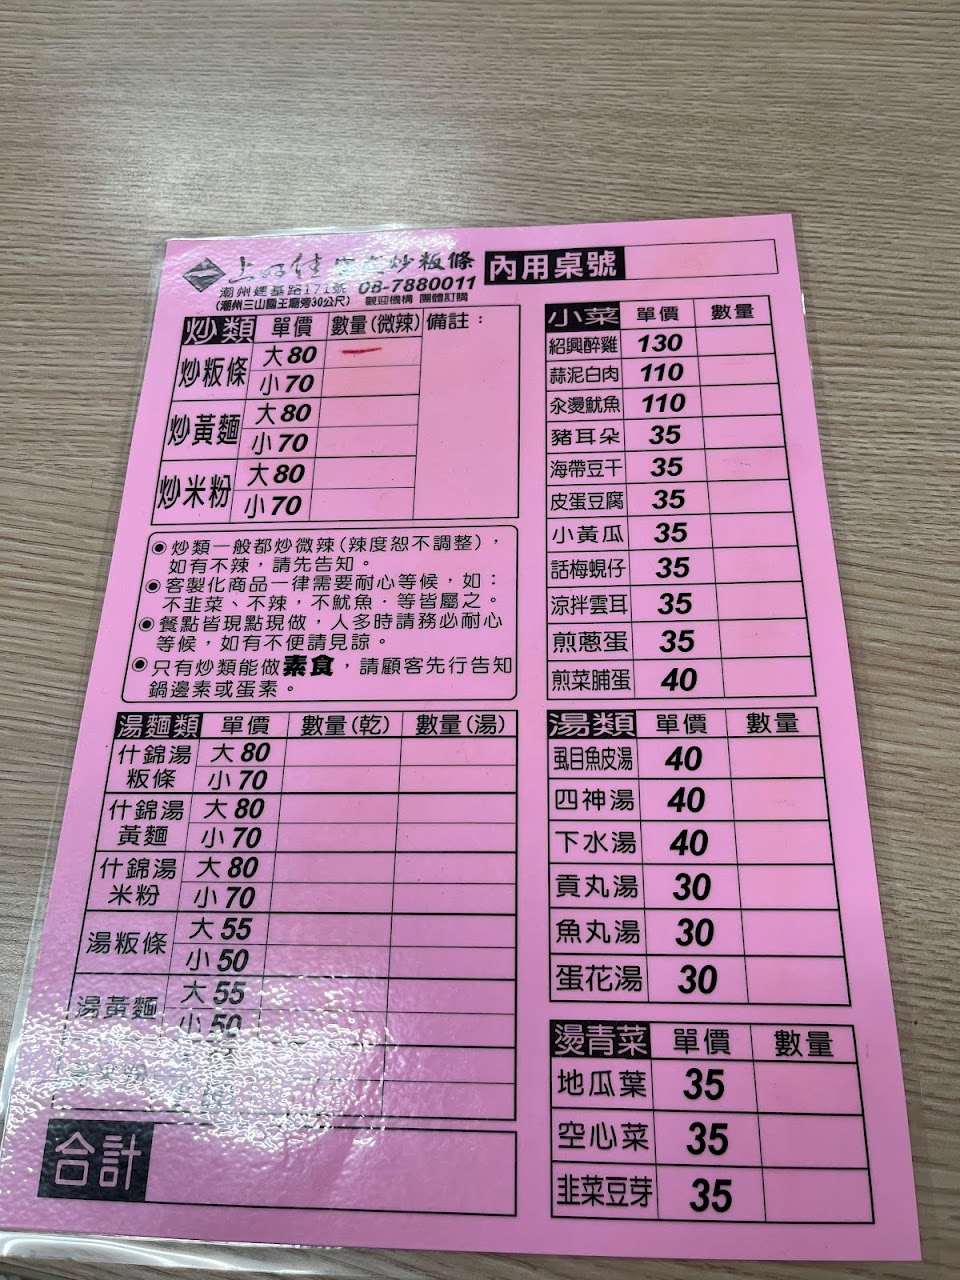 上好佳客家炒粄條
潮州建基路171號 08-7880011
(潮州三山國王廟旁30公尺) 歡迎機構 團體訂購
內用桌號
炒類 單價 數量(微辣) 備註：
炒粄條 大80
小70
炒黃麵 大80
小70
炒米粉 大80
小70
◉炒類一般都炒微辣(辣度恕不調整)，
如有不辣，請先告知。
◉客製化商品一律需要耐心等候，如：
不韭菜、不辣，不魷魚‧等皆屬之。
◉餐點皆現點現做，人多時請務必耐心
等候，如有不便請見諒。
◉只有炒類能做素食，請顧客先行告知
鍋邊素或蛋素。
湯麵類 單價 數量(乾) 數量(湯)
什錦湯粄條 大80
小70
什錦湯黃麵 大80
小70
什錦湯米粉 大80
小70
湯粄條 大55
小50
湯黃麵 大55
小50
合計
小菜 單價 數量
紹興醉雞 130
蒜泥白肉 110
汆燙魷魚 110
豬耳朵 35
海帶豆干 35
皮蛋豆腐 35
小黃瓜 35
話梅蜆仔 35
涼拌雲耳 35
煎蔥蛋 35
煎菜脯蛋 40
湯類 單價 數量
虱目魚皮湯 40
四神湯 40
下水湯 40
貢丸湯 30
魚丸湯 30
蛋花湯 30
燙青菜 單價 數量
地瓜葉 35
空心菜 35
韭菜豆芽 35